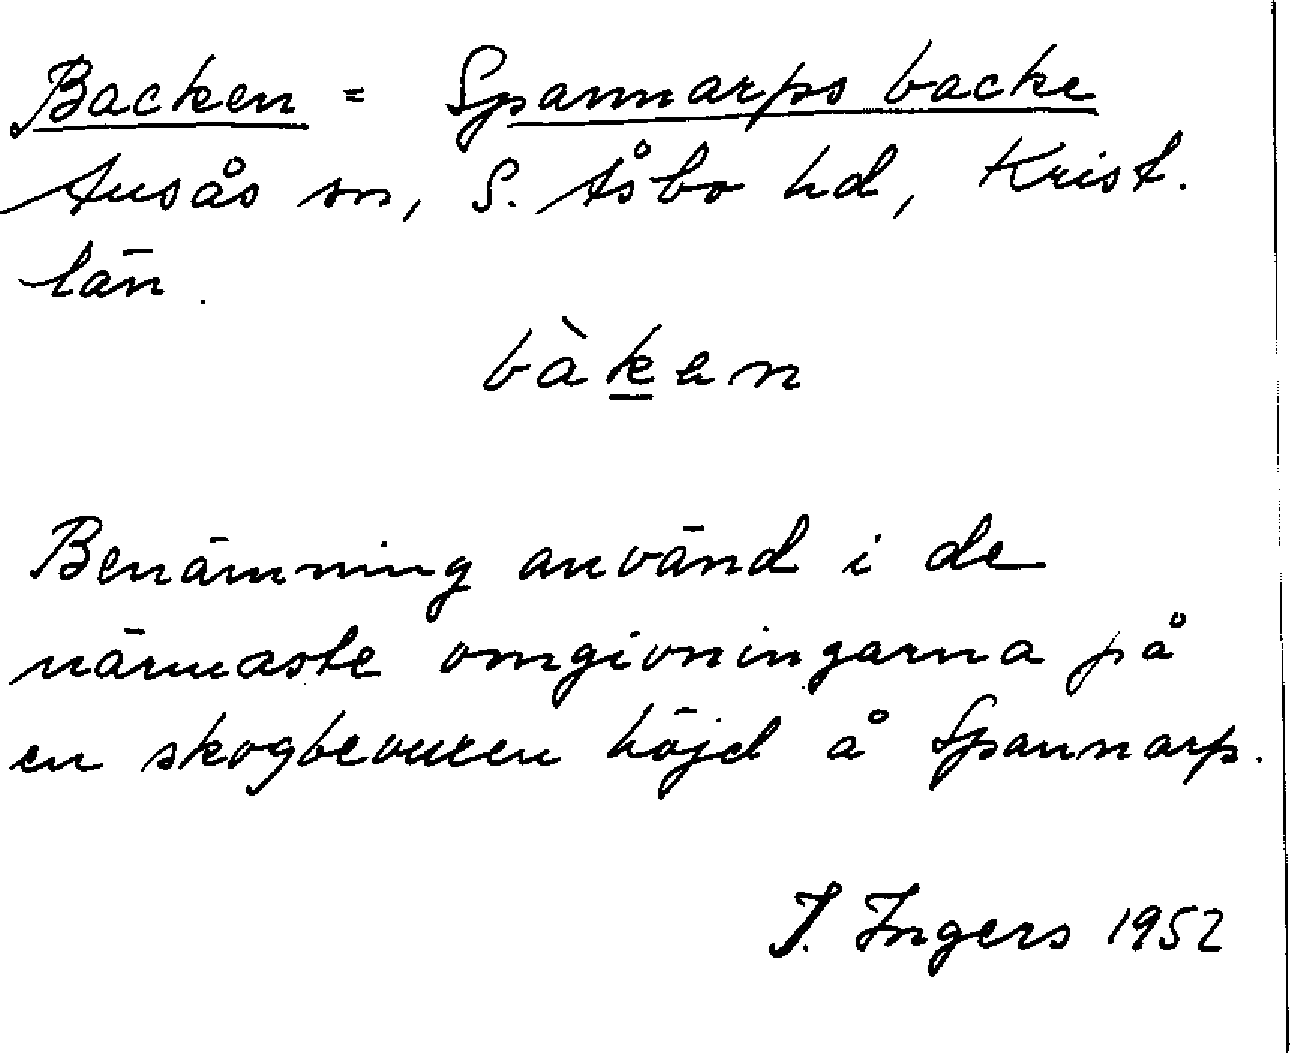 Backen = Spannarps backe
Ausås sn, S. Åsbo hd, Krist.
län.
bàken
Benämning använd i de
närmaste omgivningarna på
en skogbevuxen höjd å Spannarp.
I. Ingers 1952